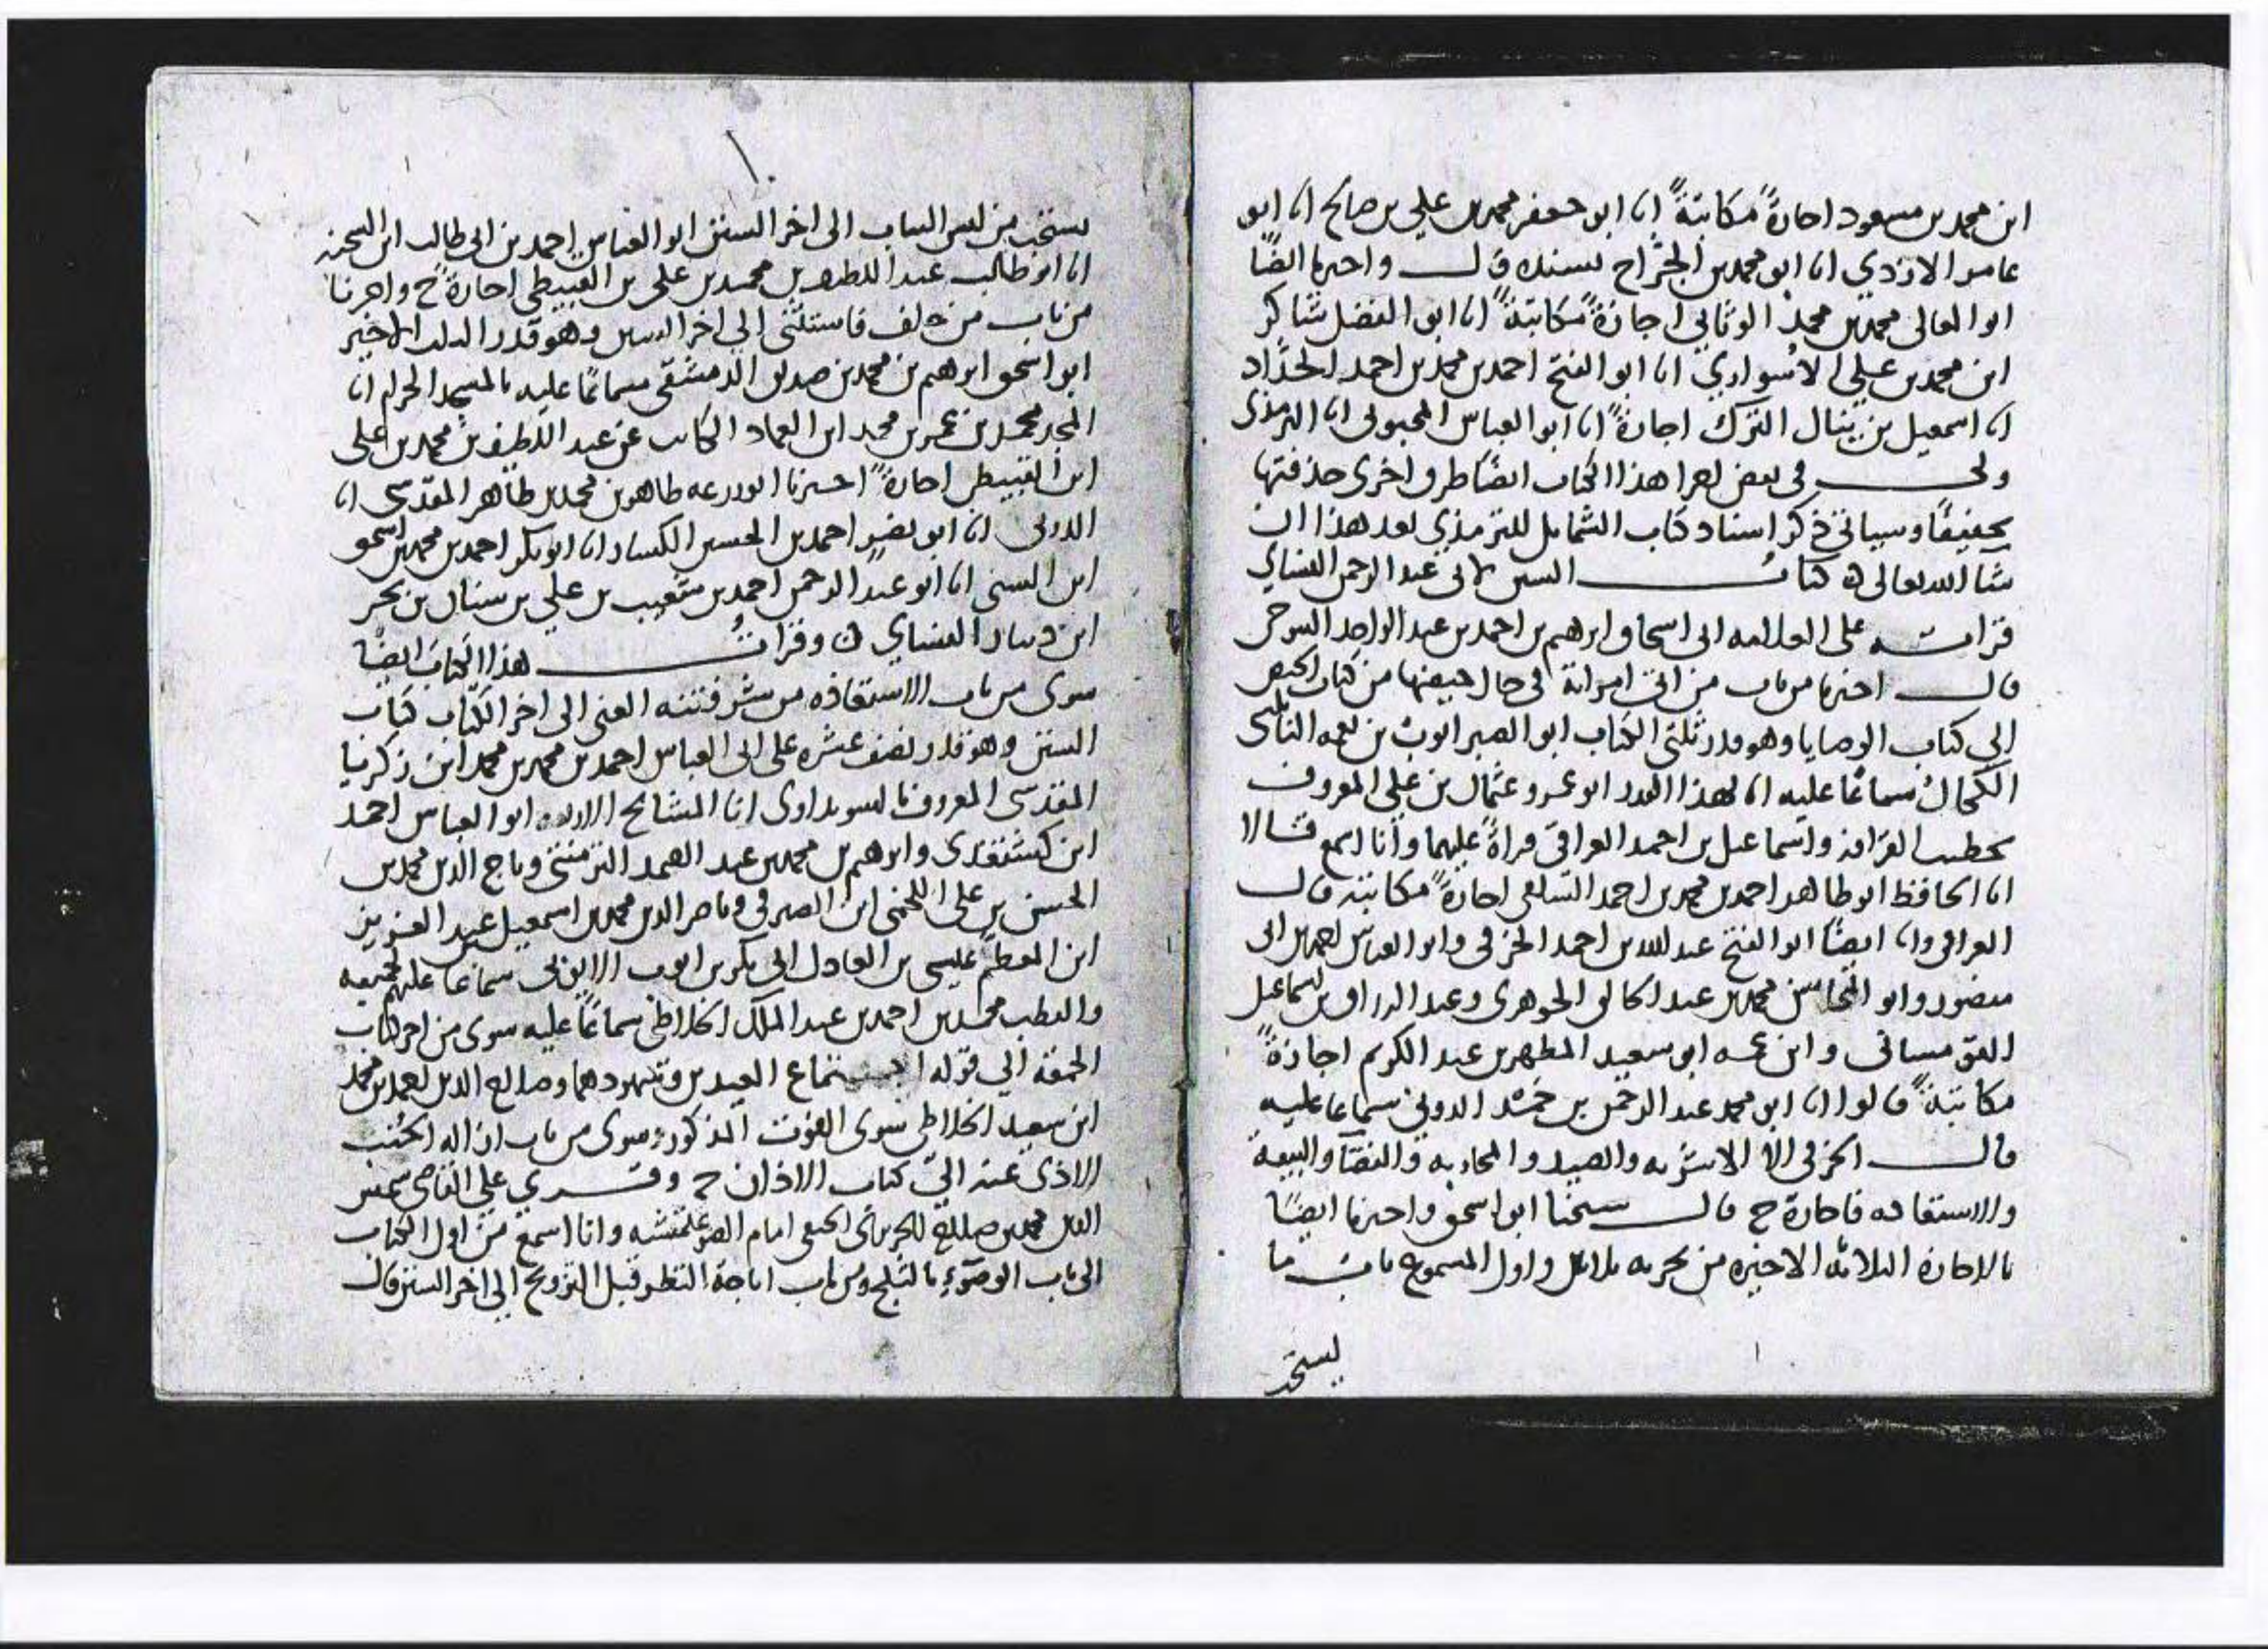 ابن محمد بن مسعود اجازةً مكاتبةً انا ابو جعفر محمد بن علي بن صالح انا ابو
عامر الازدي انا ابو محمد بن الجراح بسنده قال واخبرنا ايضًا
ابو المعالي محمد بن محمد الوثابي اجازةً مكاتبةً انا ابو الفضل شاكر
ابن محمد بن علي الاسواري انا ابو الفتح احمد بن محمد بن احمد الحدّاد
انا اسمعيل بن ينال الترك اجازةً انا ابو العباس المحبوبي انا الترمذي
ولي في بعض اجزا هذا الكتاب ايضًا طرق اخرى حذفتها
تخفيفًا وسياتي ذكر اسناد كتاب الشمايل للترمذي بعد هذا ان
شا الله تعالى كتاب السنن لابي عبد الرحمن النساي
قراته على العلامه ابي اسحاق ابرهيم بن احمد بن عبد الواحد التنوخي
قال اخبرنا من باب من اتى امراته في حال حيضها من كتاب الحيض
الى كتاب الوصايا وهو قدر ثلثي الكتاب ابو الصبر ايوب بن نعمه النابلسي
الكحال سماعًا عليه انا لهذا القدر ابو عمرو عثمان بن علي المعروف
بخطيب القرافه واسماعيل بن احمد العراقي قراةً عليهما وانا اسمع قالا
انا الحافظ ابو طاهر احمد بن محمد بن احمد السلفي اجازةً مكاتبة قال
العراقي وانا ايضًا ابو الفتح عبد الله بن احمد الخرقي وابو العباس احمد بن ابي
منصور وابو المحاسن محمد بن عبد الخالق الجوهري وعبد الرزاق بن اسماعيل
القومساني وابن عمه ابو سعيد المطهر بن عبد الكريم اجازةً
مكاتبةً قالوا انا ابو محمد عبد الرحمن بن حمد الدوني سماعًا عليه
قال الخرقي الا الاشربه والصيد والمحاربه والقضا والبيعة
والاستعاذه فاجازة ح قال شيخنا ابو اسحق واخبرنا ايضًا
بالاجازة الثلاثه الاخيره من تجزيه ثلاثين واول المسموع باب ما
يستحب
١٠
يستحب من لبس الثياب الى اخر السنن ابو العباس احمد بن ابي طالب ابن الشحنه
انا ابو طالب عبد اللطيف بن محمد بن علي بن القبيطي اجازةً ح واخبرنا
من باب من حلف فاستثنى الى اخر السنن وهو قدر الثلث الاخير
ابو اسحق ابرهيم بن محمد بن صديق الدمشقي سماعًا عليه بالمسجد الحرام انا
المجد محمد بن عمر بن محمد ابن العماد الكاتب عن عبد اللطيف بن محمد بن علي
ابن القبيطي اجازةً اخبرنا ابو زرعه طاهر بن محمد بن طاهر المقدسي انا
الدوني انا ابو نصر احمد بن الحسين الكسار انا ابو بكر احمد بن محمد بن اسحق
ابن السني انا ابو عبد الرحمن احمد بن شعيب بن علي بن سنان بن بحر
ابن دينار النساي وقرات هذا الكتاب ايضًا
سوى من باب الاستعاذه من شر فتنه الغنى الى اخر الكتاب كتاب
السنن وهو قدر نصف عشره على ابي العباس احمد بن محمد بن محمد ابن زكريا
المقدسي المعروف بالسويداوي انا المشايخ الاربعه ابو العباس احمد
ابن كشتغدي وابرهيم بن محمد بن عبد الصمد التزمنتي وتاج الدين محمد بن
الحسن بن علي اللخمي ابن الصيرفي وناصر الدين محمد بن اسمعيل عبد العزيز
ابن المعظم عيسى بن العادل ابي بكر بن ايوب الايوبي سماعًا عليهم لجميعه
والقطب محمد بن احمد بن عبد الملك الخلاطي سماعًا عليه سوى من اخر كتاب
الجمعه الى قوله اجتماع العيدين وشهودهما وصالح الدين احمد بن محمد
ابن سعيد الخلاطي سوى الفوت المذكور وسوى من باب ازاله الجنب
الاذى عنه الى كتاب الاذان ح وقري على القاضي شمس
الدين محمد بن صالح الحنفي امام الصرغتمشيه وانا اسمع من اول الكتاب
الى باب الوضوء بالثلج ومن باب اباحة النظر قبل التزويج الى اخر السنن قال